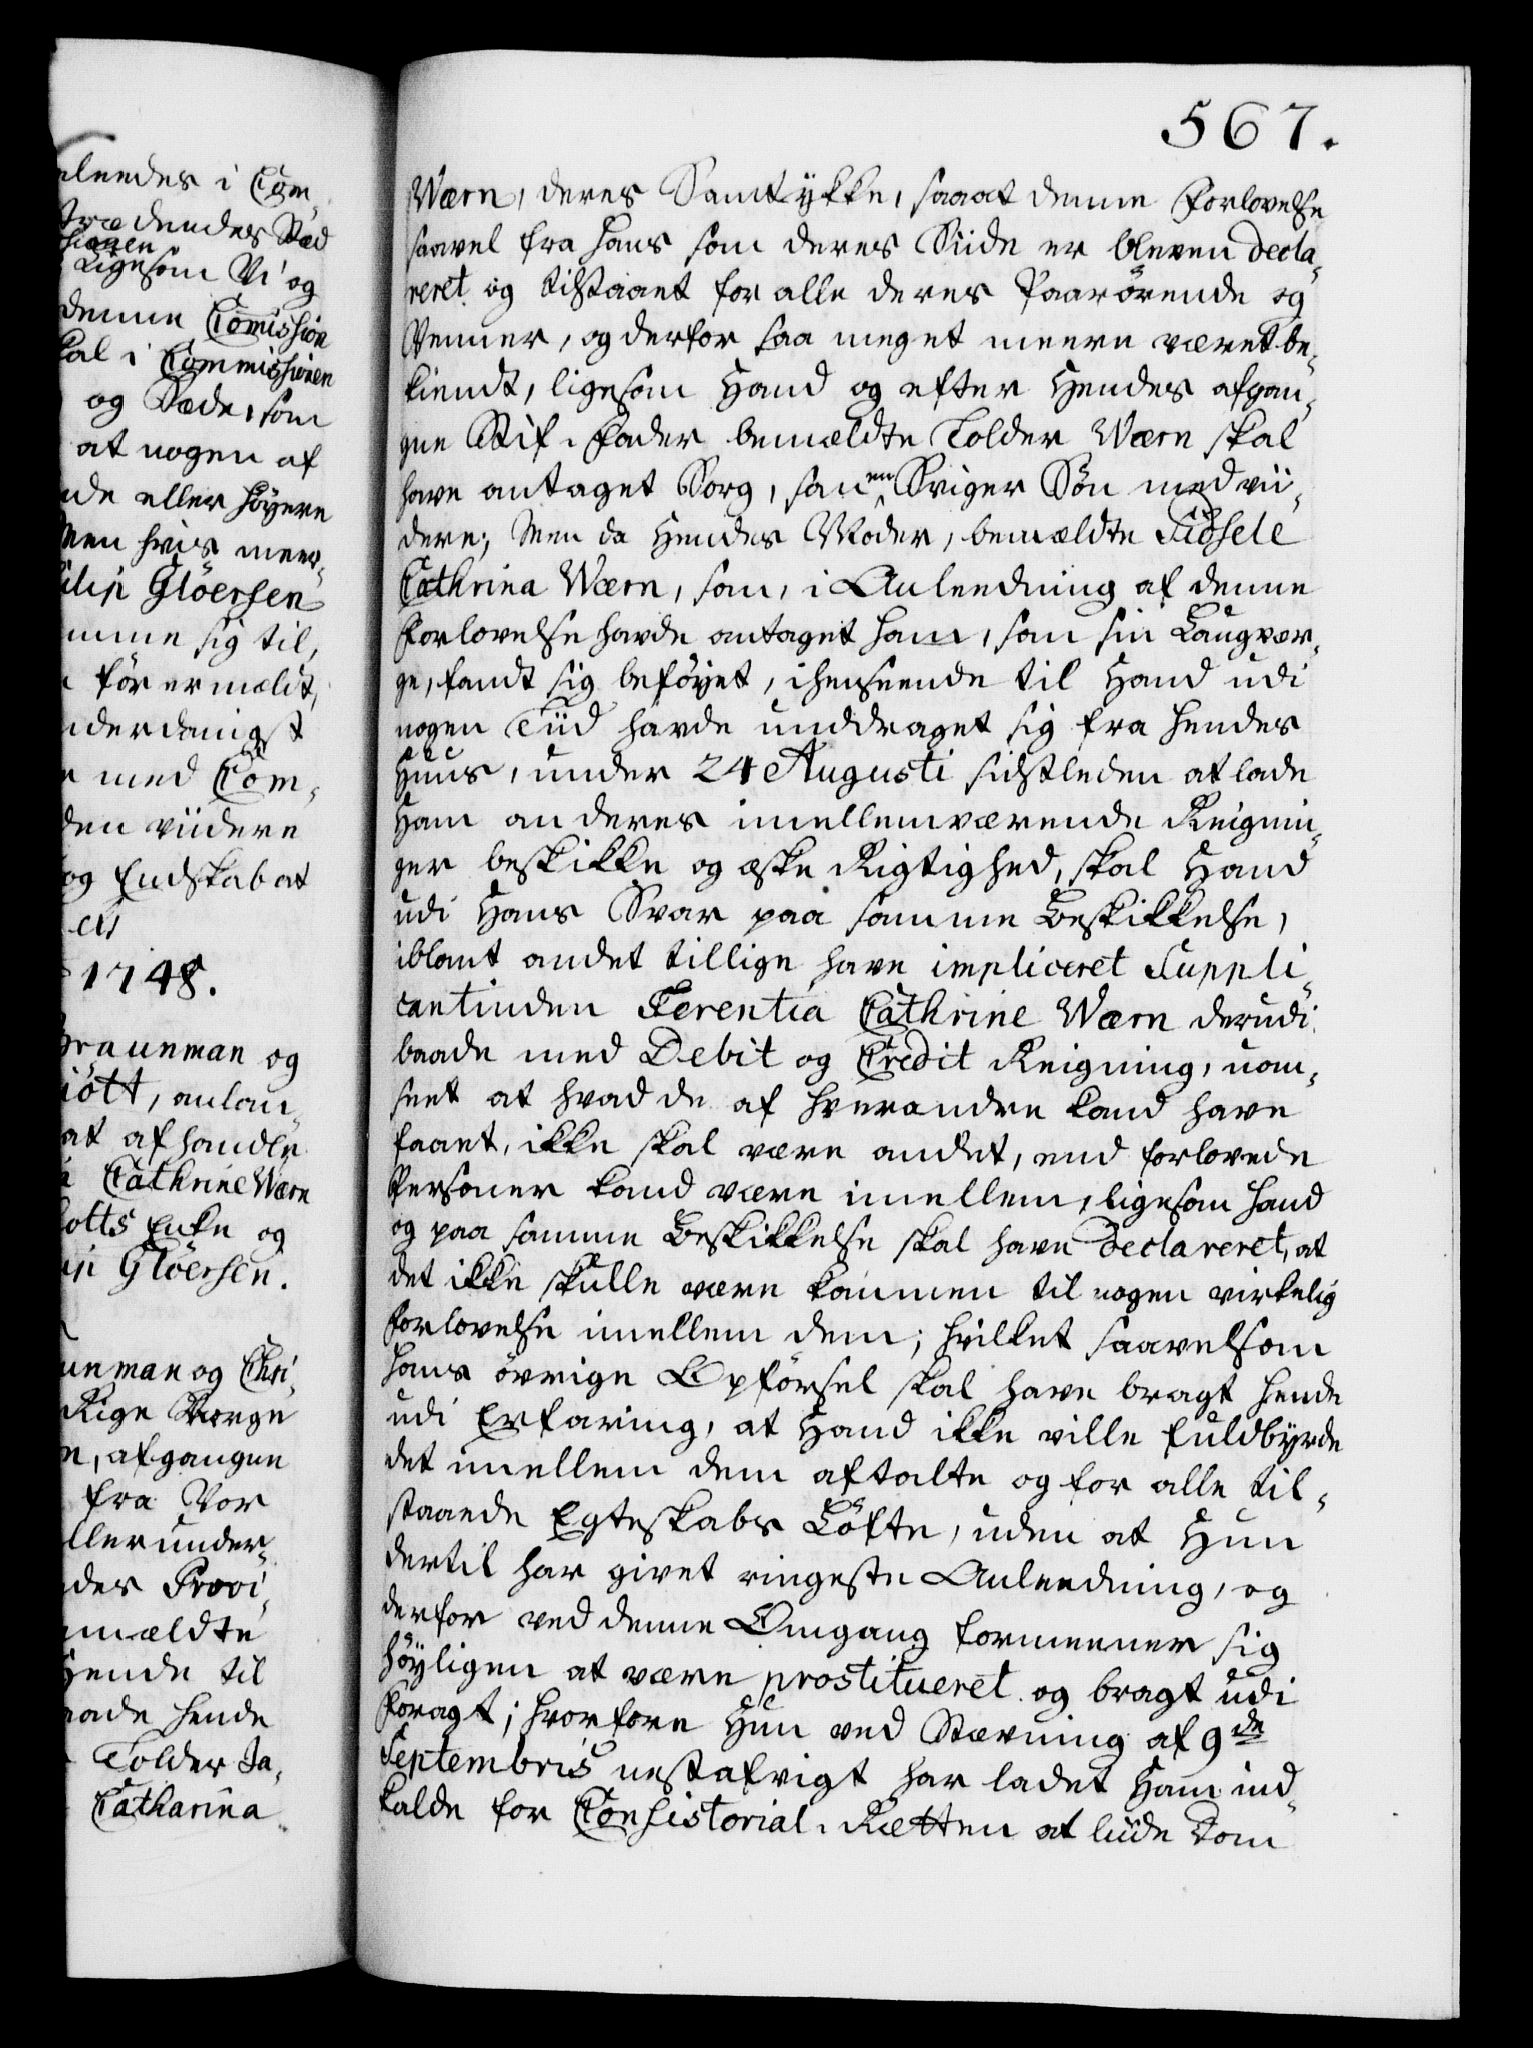 elendes i Com¸
trædendes Stæd
sionen
Ligesom Vi og
denne Comission
kal i Commissionen
og Sæde, som
at nogen af
nde eller höyere
Men hvis meer¸
ilip Glöersen
mme sig til,
för ermeldt,
nderdanigst
med Com¸
den viidere
og Endskab at
1748.
Graunman og
iött, anlan¸
at afhandle
Cathrine Wærn
kotts Enke og
ip Glöersen.
unman og Chri¸
Rige Norge
n, afgangen
fra Vor
llerunder¸
des Provi¸
mældte
hende til
hende
Tolder Ja¸
Catharina
567.
Wærn, deres Samtÿkke, saaat denne Forlovelse
saavel fra hans som deres Siide er bleven decla¸
reret og tilstaaet for alle deres Paarörende og
Venner, og derfor saa meget meere været be¸
kiendt, ligesom Hand og efter Hendes afgan¸
gne Stif-Fader bemældte Tolder Wærn skal
have antaget Sorg, som en Sviger Sön med vii¸
dere; Men da Hendes Moder, bemældte Sidsele
Cathrina Wærn, som, i Anleedning af denne
Forlovelse havde antaget ham, som sin Laugvær¸
ge, fandt sig beföyet, ihenseende til Hand udi
nogen Tiid havde unddraget sig fra hendes
Huus, under 24 Augusti sidstleden at lade
Ham om deres imellemværende Reignin¸
ger beskikke og æske Rigtighed, skal Hand
udi Hans Svar paa samme Beskikkelse,
iblant andet tillige have impliceret Suppli¸
cantinden Terentia Cathrine Wærn derudi
baade med Debit og Credit Reigning, uan¸
seet at hvad de af hverandre kand have
faaet, ikke skal være andet, end forlovede
Personer kand være imellem, ligesom Hand
og paa samme Beskikkelse skal have declareret, at
det ikke skulle være kommen til nogen virkelig
Forlovelse imellem dem; hvilket saavelsom
hans övrige Opförsel skal have bragt hende
udi Erfaring, at Hand ikke ville fuldbyrde
det imellem dem aftalte og for alle til¸
staaede Egteskabs Löfte, uden at Hun
dertil har givet ringeste Anleedning, og
derfor ved denne Omgang formeener sig
höyligen at være prostitueret og bragt udi
Foragt; hvorfore Hun ved Stævning af 9de
Septembris nestafvigt har ladet Ham ind¸
kalde for Consistorial-Rætten at liide Dom